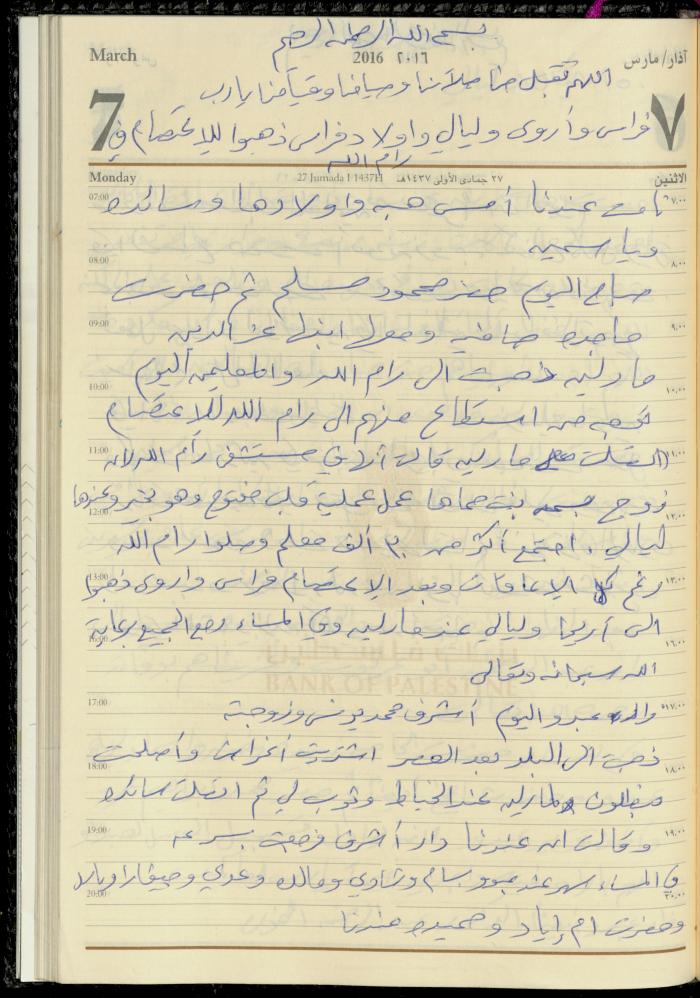 بسم الله الرحمن الرحيم
March 2016 ٢٠١٦ آذار/مارس
اللهم تقبل منا صلاتنا وصيامنا وقيامنا يا رب
7 ٧
فراس وأروى وليالي واولاد فراس ذهبوا للإعتصام في
رام الله
Monday 27 Jumada I 1437H ٢٧ جمادى الأولى ١٤٣٧هـ الاثنين
07:00 ٧:٠٠
نامت عندنا أمس هبه واولادها وسائده
وياسمين
08:00 ٨:٠٠
صباح اليوم حضر محمود مسلم ثم حضرت
09:00 ٩:٠٠
ماجده صافيه ومعها ابنها عز الدين
مارلين ذهبت الى رام الله والمعلمين اليوم
10:00 ١٠:٠٠
ذهب من استطاع منهم الى رام الله للإعتصام
11:00 ١١:٠٠
اتصلت مارلين قالت أنها في مستشفى رام الله لأن
زوج بنت حماها عمل عملية قلب مفتوح وهو بخير وعندها
12:00 ١٢:٠٠
ليالي . اجتمع أكثر من ٣٠ ألف معلم وصلوا رام الله
13:00 ١٣:٠٠
رغم كل الإعاقات وبعد الإعتصام فراس واروى ذهبوا
الى أريحا وليالي عند مارلين وفي المساء رجع الجميع برعاية
16:00 ١٦:٠٠
الله سبحانه وتعالى
BANK OF PALESTINE
17:00 ١٧:٠٠
اليوم أشرف محمد يونس وزوجته
ذهبت الى البلد بعد العصر اشتريت أغراض وأصلحت
18:00 ١٨:٠٠
بنطلون لمارلين عند الخياط وثوب لي ثم اتصلت سائده
19:00 ١٩:٠٠
وقالت انه عندنا دار أشرف فرجعت بسرعه
في المساء سهر عند عبود بسام وشادي ومالك وعدي
20:00 ٢٠:٠٠
وحضرت ام إياد وحميده عندنا